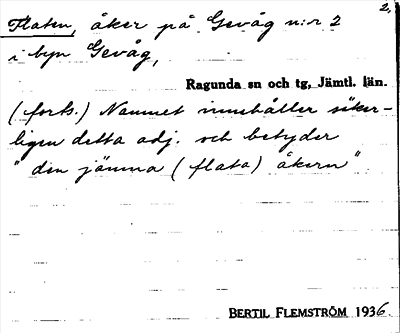 2,
Flaten, åker på Gevåg n:r 2
i byn Gevåg,
Ragunda sn och tg, Jämtl. län.
(forts.) Namnet innehåller säker-
ligen detta adj. och betyder
"den jämna (flata) åkern".
BERTIL FLEMSTRÖM 1936.